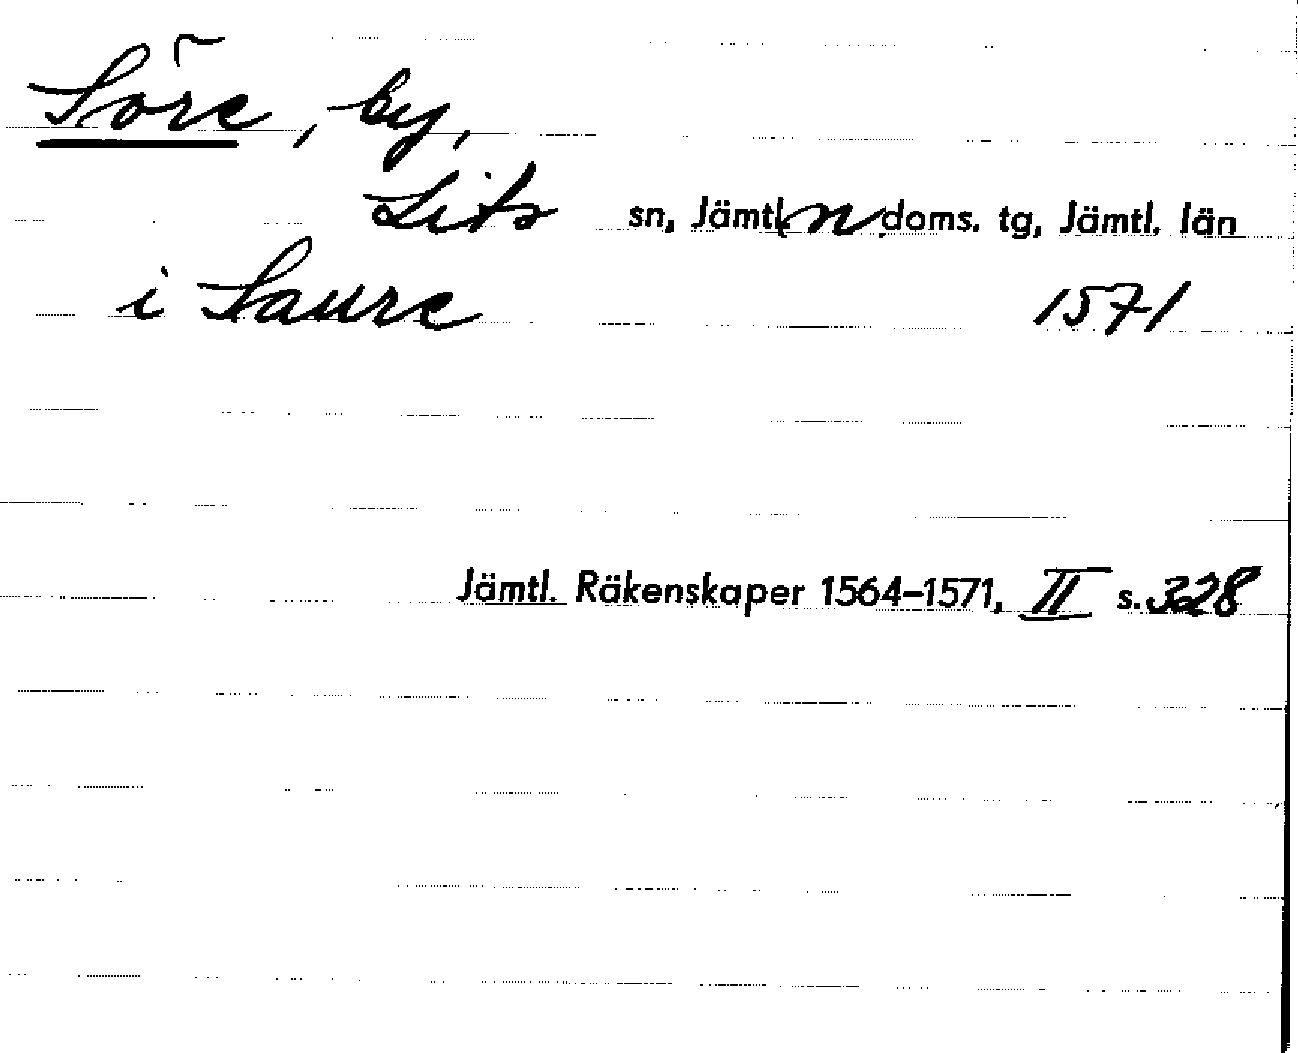 Söre, by,
Lits sn, Jämtl. n doms. tg, Jämtl. län
i Saure 1571
Jämtl. Räkenskaper 1564–1571, II s. 328